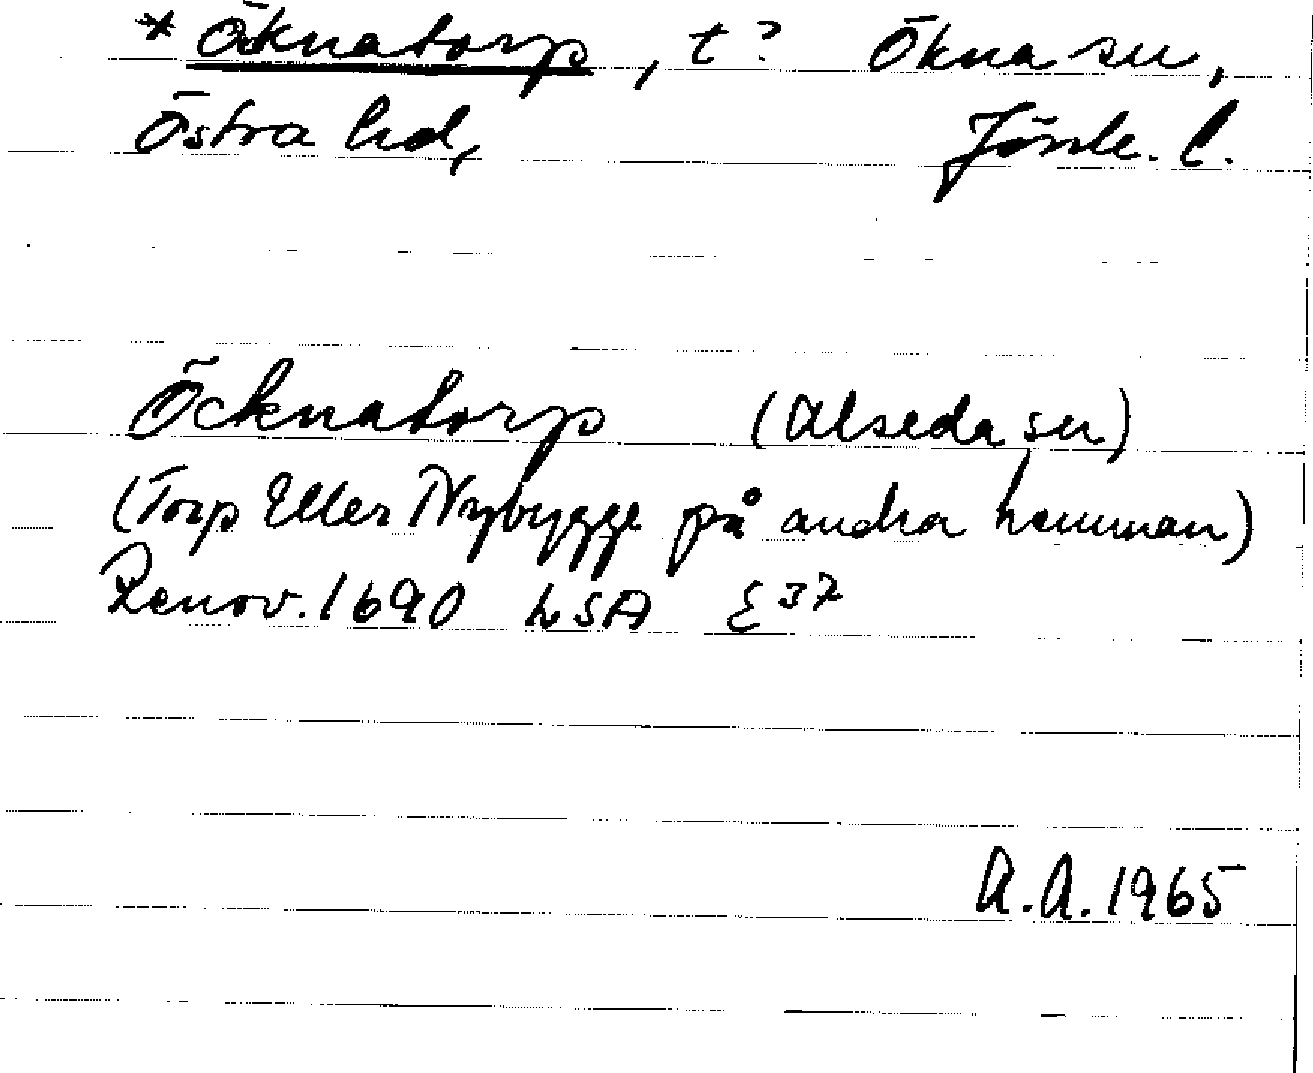 * Öknatorp, t? Ökna sn,
Östra hd, Jönk. l.
Öcknatorp (Alseda sn)
(Torp Eller Nybygge på andra hemman)
Renov. 1690 LSA E 37
A.A. 1965